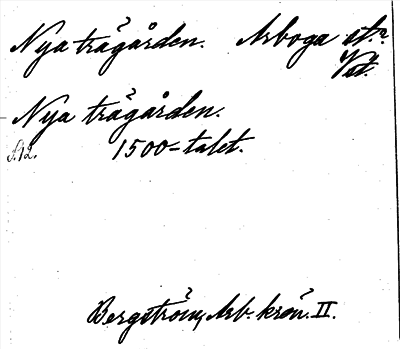 Nya trägården. Arboga st.
Vstl.
Nya trägården.
S. 12. 1500-talet.
Bergström, Arb. krön. II.